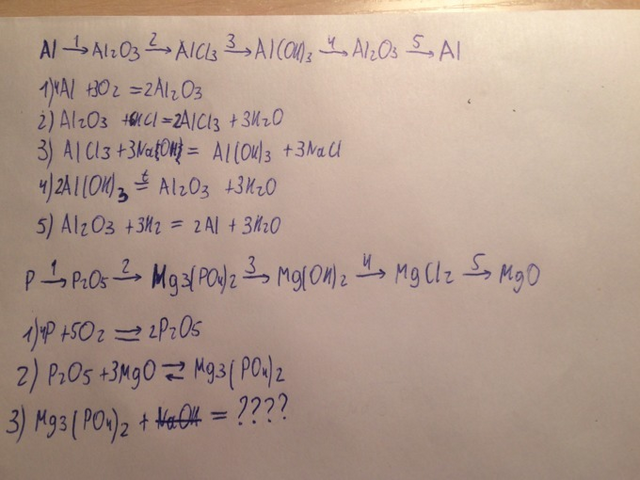 Al →1 Al2O3 →2 AlCl3 →3 Al(OH)3 →4 Al2O3 →5 Al
1) 4Al + 3O2 = 2Al2O3
2) Al2O3 + 6HCl = 2AlCl3 + 3H2O
3) AlCl3 + 3Na(OH) = Al(OH)3 + 3NaCl
4) 2Al(OH)3 t= Al2O3 + 3H2O
5) Al2O3 + 3H2 = 2Al + 3H2O
P →1 P2O5 →2 Mg3(PO4)2 →3 Mg(OH)2 →4 MgCl2 →5 MgO
1) 4P + 5O2 ⇒ 2P2O5
2) P2O5 + 3MgO ⇄ Mg3(PO4)2
3) Mg3(PO4)2 + NaOH = ????